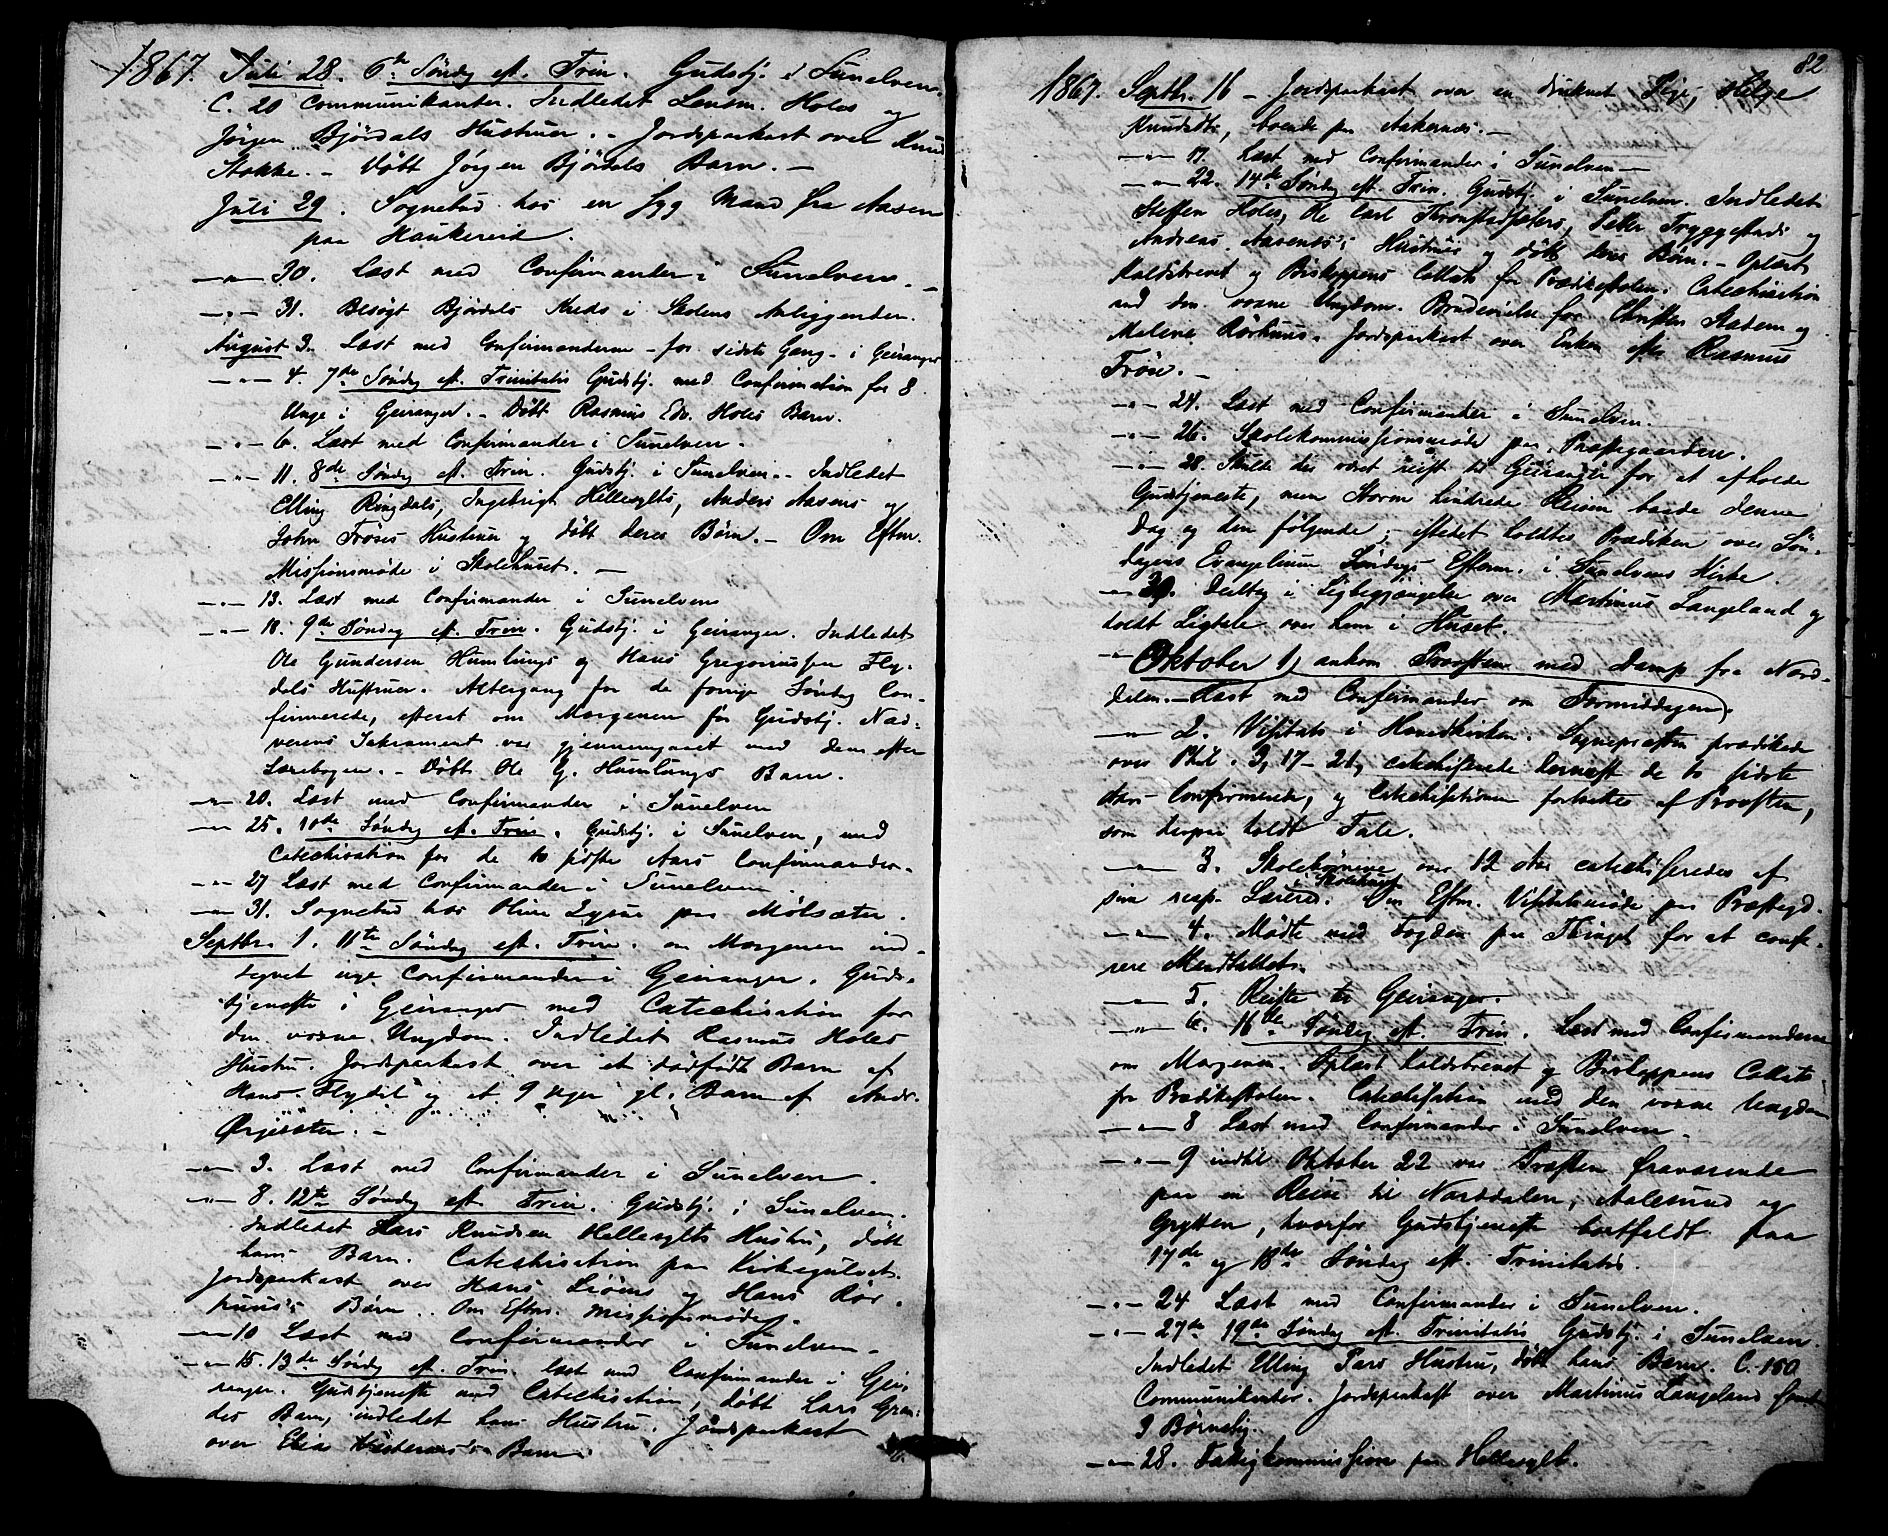 1867. Juli 28. 6te Søndg eft. Trin. Gudstj. i Sunelven.
C. 20 Communikanter. Indledet Lensm. Holes og
Jørgen Bjørdals Hustruer. - Jordspaakast over Knud
Stokke. - Døbt Jørgen Bjørdals Barn. -
Juli 29. Sognebud hos en syg Mand fra Aasen
paa Haukereid.
-"- 30. Læst med Confirmander i Sunelven. -
-"- 31. Besøgt Bjørdals Kreds i Skolens Anliggender.
August 3. Læst med Confirmanderne - for sidste Gang - i Geiranger
-"- 4. 7de Søndg eft. Trinitatis Gudstj. med Confirmation for 8
Unge i Geiranger. - Døbt Rasmus Edv. Holes Barn.
-"- 6. Læst med Confirmander i Sunelven.
-"- 11. 8de Søndg eft. Trin. Gudstj. i Sunelven. - Indledet
Elling Ringdals, Ingebrigt Hellesylts, Anders Aasens og
John Trøens Hustruer og døbt deres Børn. - Om Eftm.
Missionsmøde i Skolehuset. -
-"- 13. Læst med Confirmander i Sunelven
-"- 18. 9de Søndg eft. Trin. Gudstj. i Geiranger. Indledet
Ole Gundersen Humlungs og Hans Gregoriussen Fly-
dals Hustruer. Altergang for de forrige Søndag Con-
firmerede, efterat om Morgenen før Gudstj. Nad-
verens Sakrament var gjennemgaaet med dem efter
Lærebogen. - Døbt Ole G. Humlungs Barn.
-"- 20. Læst med Confirmander i Sunelven
-"- 25. 10de Søndg eft. Trin. Gudstj. i Sunelven, med
Catechisation for de to sidste Aars Confirmander.
-"- 27 Læst med Confirmander i Sunelven.
-"- 31. Sognebud hos Oline paa Mølsæter.
Septbr. 1. 11te Søndg eft. Trin. om Morgenen ind-
tegnet nye Confirmander i Geiranger. Guds-
tjeneste i Geiranger med Catechisation for
den voxne Ungdom. Indledet Rasmus Holes
Hustru. Jordspaakast over et dødfødt Barn af
Hans Flydal og et 9 Uger gl. Barn af Andr.
Ørjesæter. -
-"- 3. Læst med Confirmander i Sunelven.
-"- 8. 12te Søndg eft. Trin. Gudstj. i Sunelven.
Indledet Lars Knudsen Hellesylts Hustru, døbt
hans Barn. Catechisation paa Kirkegulvet.
Jordspaakast over Hans Liøens og Hans Rør-
huus's Børn. Om Eftm. Missionsmøde.
-"- 10 Læst med Confirmander i Sunelven.
-"- 15. 13de Søndg eft. Trin. Læst med Confirmander i Gei-
ranger. Gudstjeneste med Catechisation, døbt Lars Gran-
des Barn, indledet hans Hustru. Jordspaakast
over Elias Barn.
82
1867. Septbr. 16 - Jordspaakast over en druknet Pige, Helge
Knudsdtr, boende paa Aakernes. -
-"- 17. Læst med Confirmander i Sunelven -
-"- 22. 14de Søndg eft. Trin. Gudstj. i Sunelven. Indledet
Steffen Holes, Ole Carl Thronstadsæters, Petter Tryggestads og
Andreas Aasenæs's Hustruer og døbt deres Børn. - Oplæst
Kaldsbrevet og Biskoppens Collats fra Prædikestolen. Catechisation
med den voxne Ungdom. Brudevielse for Christen Stadem og
Malene Rørhuus. Jordspaakast over Enken efter Rasmus
Trøen. -
-"- 24. Læst med Confirmander i Sunelven.
-"- 26. Skolekommissionsmøde paa Præstegaarden.
-"- 28. Skulde der været reist til Geiranger for at afholde
Gudstjeneste, men Storm hindrede Reisen baade denne
Dag og den følgende; istedet holdtes Prædiken over Søn-
dagens Evangelium Søndags Efterm. i Sunelvens Kirke.
-"- 30. Deeltog i Ligbegjængelse over Martinus Langeland og
holdt Ligtale over ham i Huset.
-"- Oktober 1, ankom Provsten med Damp fra Nord-
dalen. - Læst med Confirmander om Formiddagen.
-"- 2. Visitats i Hovedkirken. Sognepræsten prædikede
over Phil. 3, 17-21, catechiserede dernæst de to sidste
Aars Confirmerede, og Catechisationen fortsattes af Provsten,
som derpaa holdt Tale.
-"- 3. Skolebørnene over 12 Aar catechiseredes af
sine resp. Lærere i Skolehuset. Om Eftm. Visitatsmøde paa Præstegd.
-"- 4. Mødte med Fogden paa Thinget for at confe-
rere Mandtallet.
-"- 5. Reiste til Geiranger.
-"- 6. 16de Søndg eft. Trin. Læst med Confirmanderne
om Morgenen. Oplæst Kaldsbrevet og Biskoppens Collats
fra Prædikestolen. Catechisation med den voxne Ungdom
-"- 8 Læst med Confirmander i Sunelven.
-"- 9 indtil Oktober 22 var Præsten fraværende
paa en Reise til Norddalen, Aalesund og
Grytten, hvorfor Gudstjeneste bortfaldt paa
17de og 18de Søndag eft. Trinitatis.
-"- 24 Læst med Confirmander i Sunelven.
-"- 27de 19de Søndg eft. Trinitatis Gudstj. i Sunelven.
Indledet Elling Pers Hustru, døbt hans Barn. C. 150
Communikanter. Jordspaakast over Martinus Langeland samt
3 Børnelig.
-"- 28. Fattigkommission paa Hellesylt.